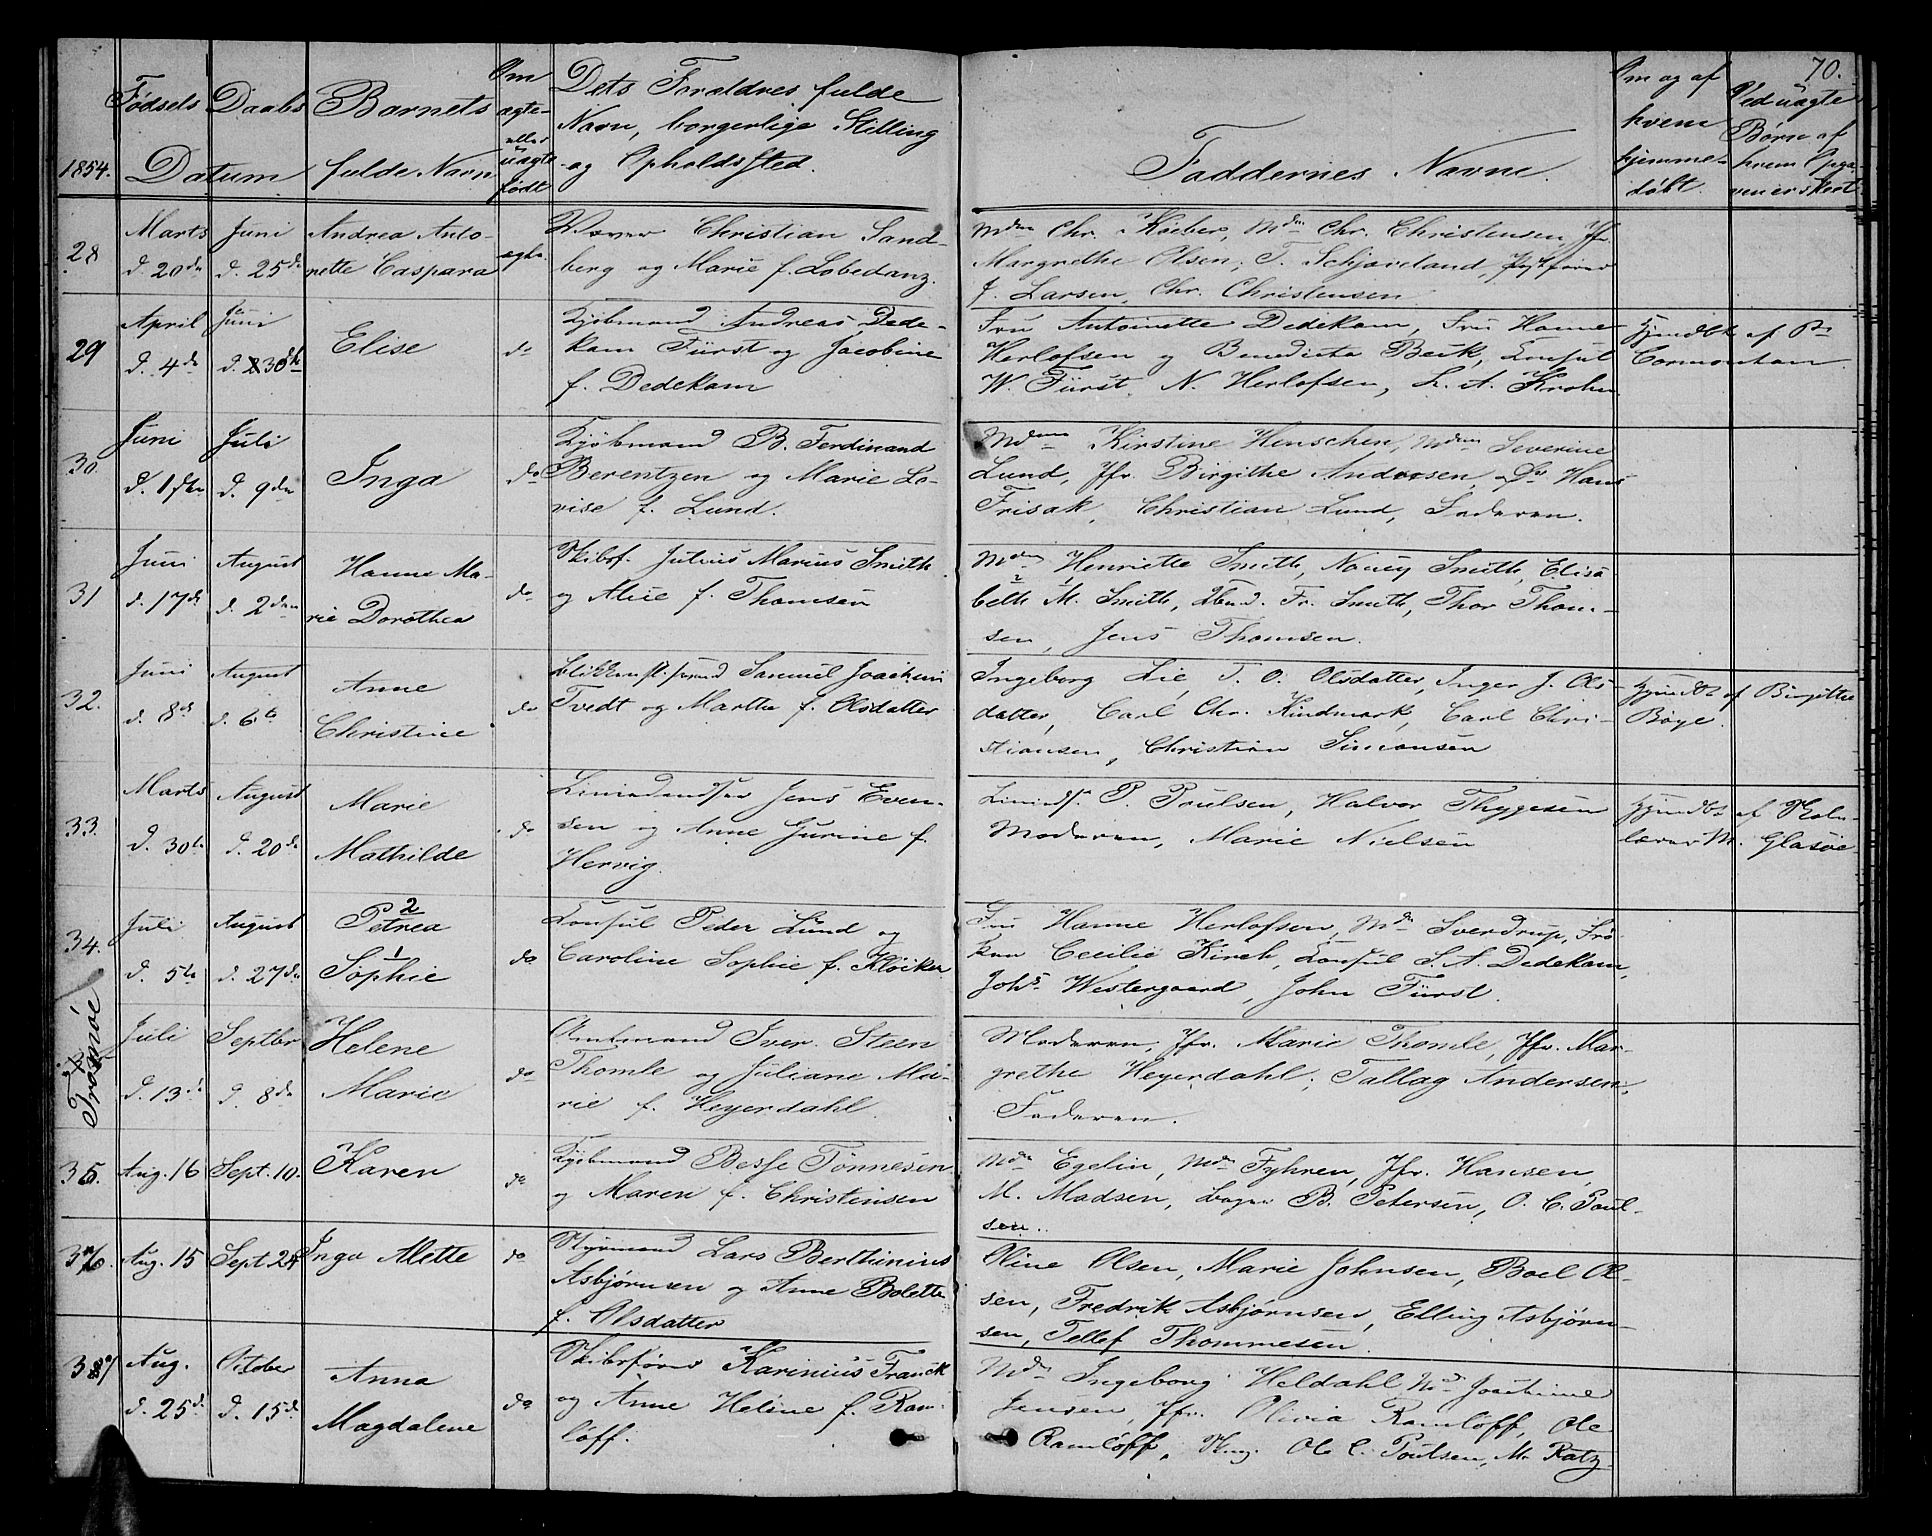 70.
1854.
Fødsels Daabs
Datum
Barnets
fulde Navn
Om
ægte
eller
uægte
født
Dets Forældres fulde
Navn, borgerlige Stilling
og Opholdssted.
Faddernes Navne.
Om og af
hvem
hjemme-
døbt.
Ved uægte
Børn af
hvem Opga-
ven er skeet
28
Marts
d. 20de
Juni
d. 25de
Andrea Anto-
nette Caspara
ægte
Christian Sand-
berg og Marie f. Lobedanz.
Mdm Chr. Kieber, Mdm Chr. Christensen, Jfr.
Margrethe Olsen, T. Schjaveland,
J. Larsen, Chr. Christensen
29
April
d. 4de
Juni
d. 30te
Elise
do
Kjøbmand Andreas Dede-
kam Fürst og Jacobine
f. Dedekam
Fru Antoinette Dedekam, Fru Hanne
Herlofsen og Benedicte Beck, Consul
W. Fürst, N. Herlofsen, L. A. Krohn.
Hjmdbt af P.
Cormontan.
30.
Juni
d. 1ste
Juli
d. 9de
Inga
do
Kjøbmand B. Ferdinand
Berentzen og Marie Lo-
vise f. Lund.
Mdm Kirstine Henschen, Mdm Severine
Lund, Jfr. Birgithe Andersen, Hans
Frisak, Christian Lund, Faderen.
31
Juni
d. 17de
August
d. 2den
Hanne Ma-
rie Dorothea
do
Skibsf. Julius Marius Smith
og Alice f. Thomsen
Mdm Henriette Smith, Nancy Smith, Elisa-
beth M. Smith, Fr. Smith, Thor Thom-
sen, Jens Thomsen.
32.
Juni
d. 8de
August
d. 6te
Anne
Christine
do
Samuel Joachim
Tvedt og Marthe f. Olsdatter
Ingeborg Lie, T. O. Olsdatter, Inger J. Ols-
datter, Carl Chr. Kindmark, Carl Chri-
stiansen, Christian Simonsen
Hjmdbt af Birgitte
Boye.
33.
Marts
d. 30te
August
d. 20de
Marie
Mathilde
do
Jens Even-
sen og Anne Gurine f.
Hervig.
P. Poulsen, Halvor Thygesen
Moderen, Marie Nielsen
Hjmdbt af Skole-
lærer M. Glasøe
34.
Juli
d. 5te
August
d. 27de
2
Petrea
1
Sophie
do
Consul Peder Lund og
Caroline Sophie f. Kløcker
Fru Hanne Herlofsen, Mdm Sverdrup, Frø-
ken Cecilie Kirch, Consul S. A. Dedekam,
Johs. Westergaard, John Fürst.
Tromøe
Juli
d. 13de
Septbr
d. 8de
Helene
Marie
do
Amtmand Iver Steen
Thomle og Juliane Ma-
rie f. Heyerdahl.
Moderen, Jfr. Marie Thomle, Jfr. Mar-
grethe Heyerdahl, Tallag Andersen,
Faderen.
35.
Aug. 16
Sept. 10.
Karen
do
Kjøbmand Besse Tønnesen
og Maren f. Christensen
Mdm Egelin, Mdm Fyhren, Jfr. Hansen,
M. Madsen, B. Petersen, O. C. Poul-
sen.
36
Aug. 15
Sept. 24
Inga Alette
do
Styrmand Lars Berthinius
Asbjørnsen og Anne Bolette
f. Olsdatter
Oline Olsen, Marie Johnsen, Boel Ol-
sen, Fredrik Asbjørnsen, Elling Asbjørn-
sen, Tellef Thommesen.
37
Aug.
d. 25de
October
d. 15de
Anna
Magdalene
do
Skibsfører Karinius Franck
og Anne Helene f. Ram-
løff.
Mdm Ingeborg Heldahl, Mdm Joachime
Jensen, Jfr. Olivia Ramløff, Ole
Ramløff, Ole C. Poulsen, M. Ratz